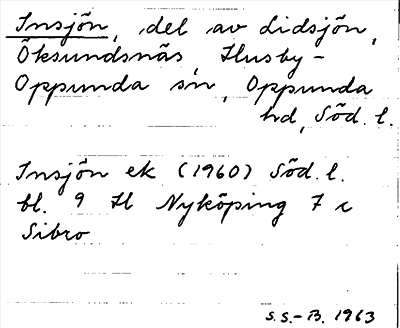 Insjön, del av Lidsjön,
Öksundsnäs, Husby-
Oppunda sn, Oppunda
hd, Söd. l.
Insjön ek (1960) Söd. l.
bl. 9 H Nyköping 7 c
Sibro
S.S.-B. 1963